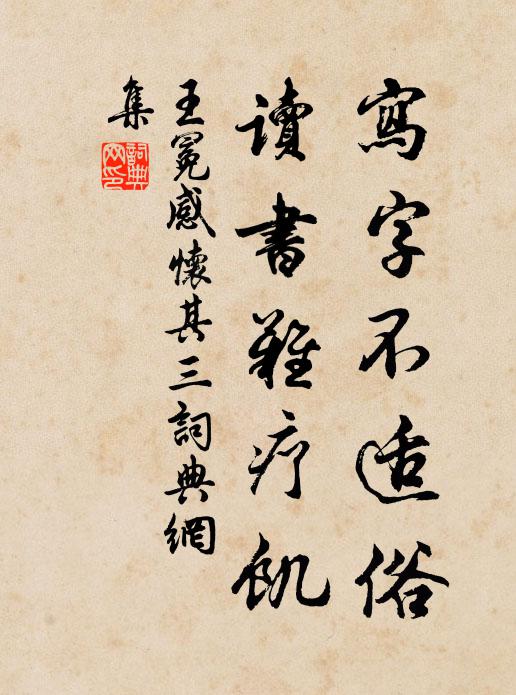 寫字不适俗
讀書難疗飢
王冕感懷其三詞典網
集
詞典
网印